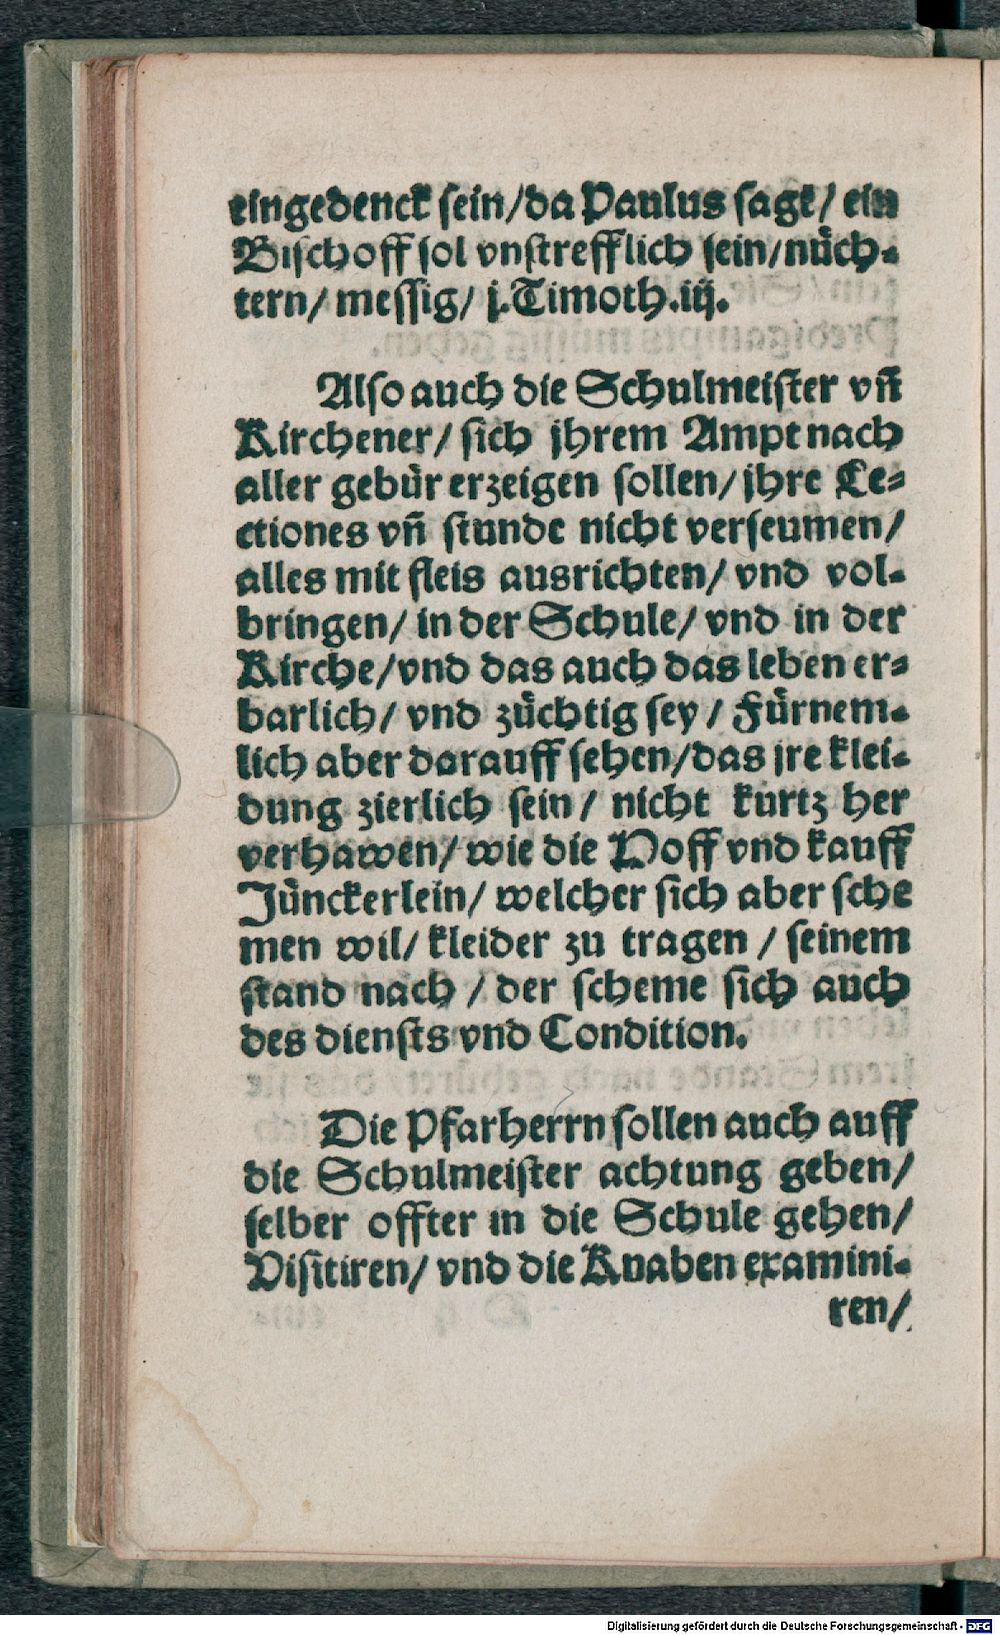 eingedenck sein/da Paulus sagt/ ein
Bischoff sol vnstrefflich sein/nuͤch-
tern/ messig/ j.Timoth.iij.
Also auch die Schulmeister vñ
Kirchener/ sich jhrem Ampt nach
aller gebuͤr erzeigen sollen/jhre Le-
ctiones vñ stunde nicht verseumen/
alles mit fleis ausrichten/ vnd vol-
bringen/ in der Schule/ vnd in der
Kirche/vnd das auch das leben er-
barlich/ vnd zuͤchtig sey/ Fuͤrnem-
lich aber darauff sehen/das jre klei-
dung zierlich sein/ nicht kurtz her
verhawen/ wie die Hoff vnd kauff
Juͤnckerlein/ welcher sich aber sche
men wil/ kleider zu tragen / seinem
stand nach / der scheme sich auch
des diensts vnd Condition.
Die Pfarherrn sollen auch auff
die Schulmeister achtung geben/
selber offter in die Schule gehen/
Visitiren/ vnd die Knaben examini-
ren/
Digitalisierung gefördert durch die Deutsche Forschungsgemeinschaft - DFG